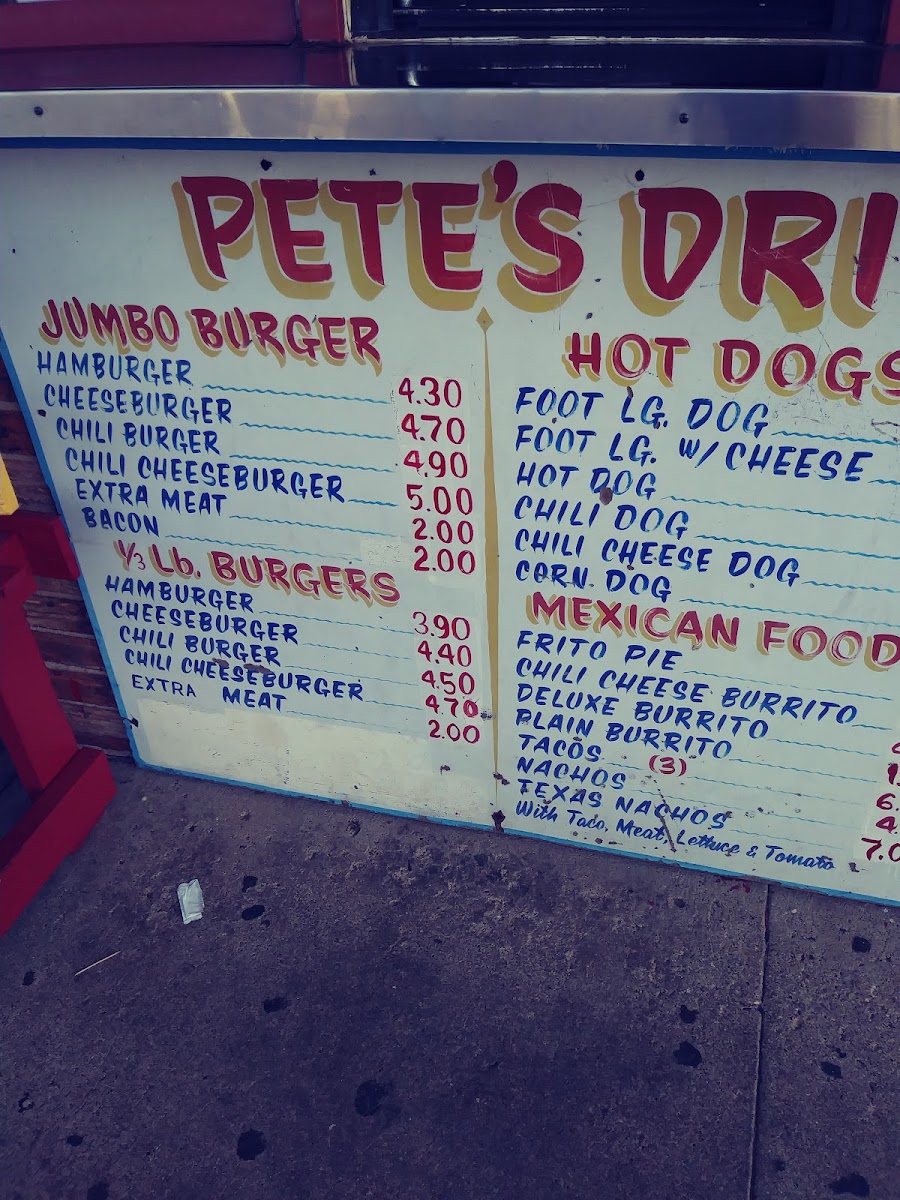 PETE'S DRI
JUMBO BURGER
HAMBURGER 4.30
CHEESEBURGER 4.70
CHILI BURGER 4.90
CHILI CHEESEBURGER 5.00
EXTRA MEAT 2.00
BACON 2.00
1/3 Lb. BURGERS
HAMBURGER 3.90
CHEESEBURGER 4.40
CHILI BURGER 4.50
CHILI CHEESEBURGER 4.70
EXTRA MEAT 2.00
HOT DOGS
FOOT LG. DOG
FOOT LG. W/ CHEESE
HOT DOG
CHILI DOG
CHILI CHEESE DOG
CORN DOG
MEXICAN FOOD
FRITO PIE
CHILI CHEESE BURRITO
DELUXE BURRITO
PLAIN BURRITO
TACOS (3) 6.
NACHOS 4.
TEXAS NACHOS 7.0
With Taco, Meat, Lettuce & Tomato